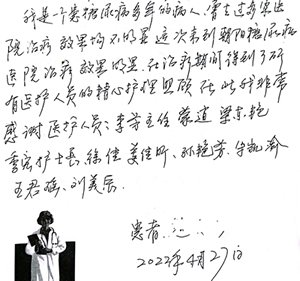 我是一个患糖尿病多年的病人,曾去过多家医
院治疗效果均不明显这次来到朝阳糖尿病
医院治疗效果明显,在治疗期间得到了所
有医护人员的精心护理照顾 在此我非常
感谢医护人员:李芳主任 蒙道 梁东艳
季宏护士长 徐佳 姜佳昕、孙艳芳、
王君瑶、刘美辰.
患者
2022年4月27日